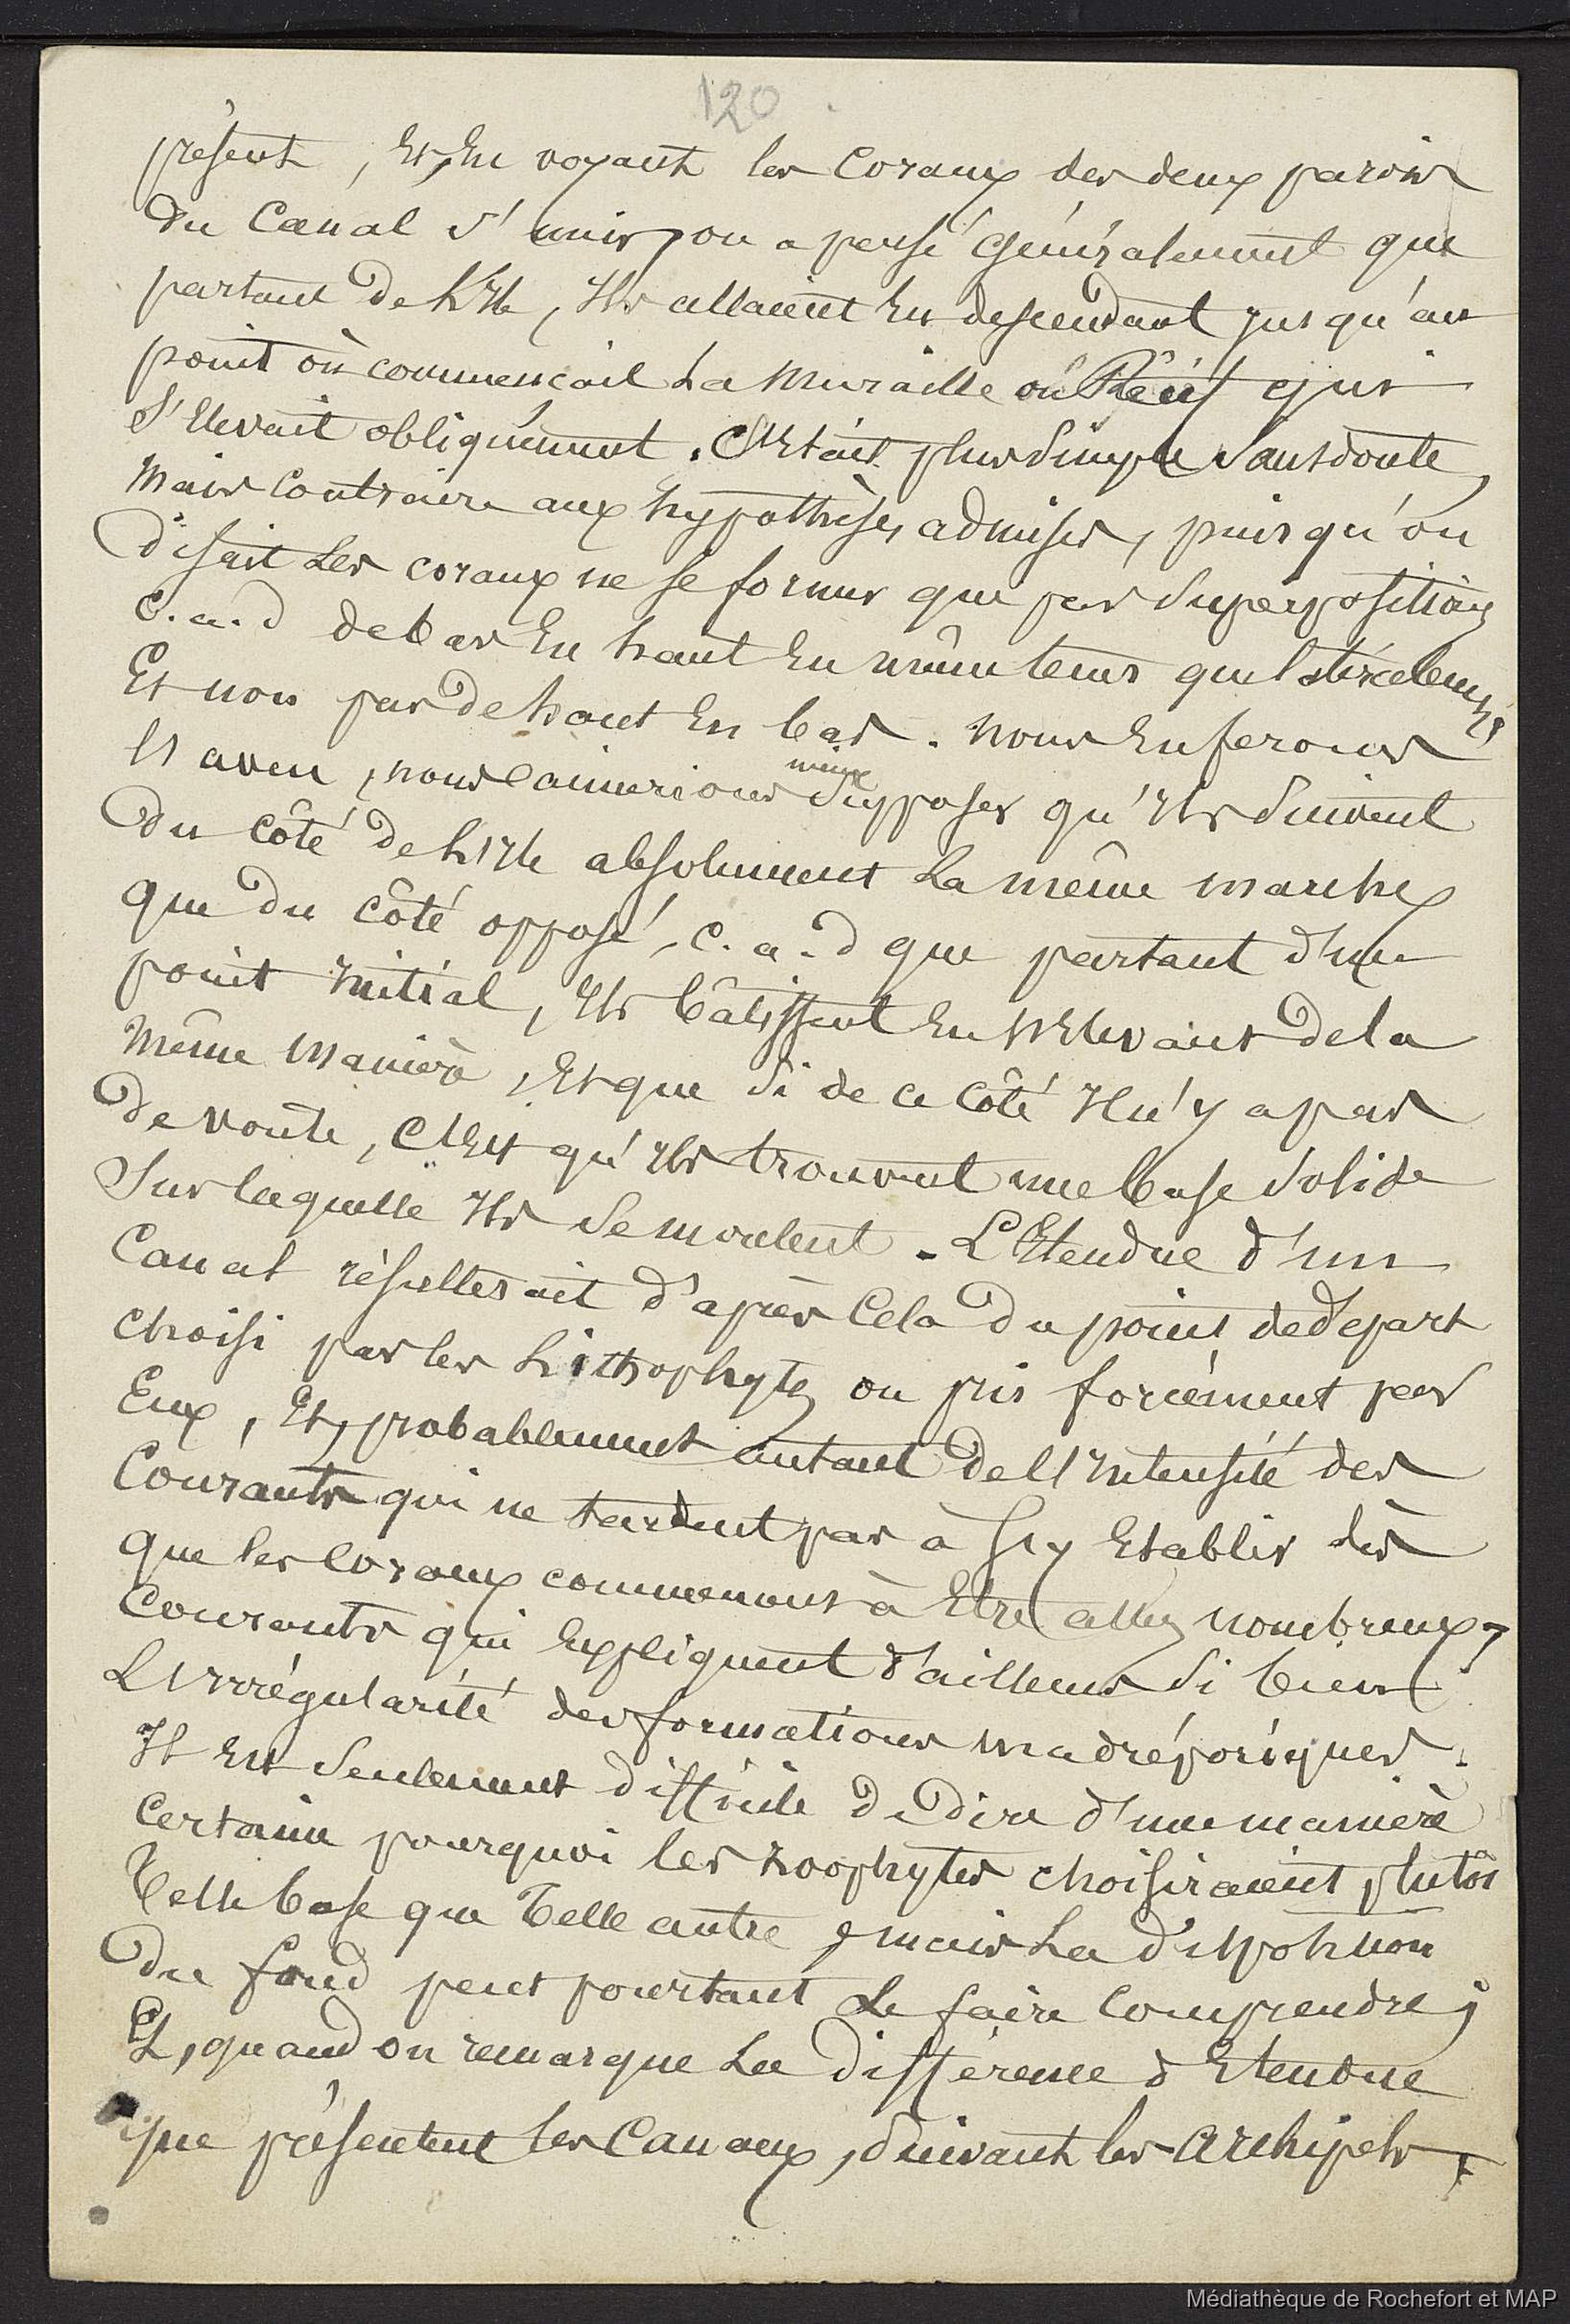 120
présent, Et, En voyant les Coraux des deux parois
du Canal s'unir, on a pensé généralement que
partant de l'Ile, Ils allaient En descendant jusqu'au
point où commençait La Muraille ou Récif qui
s'Elevait obliquement. C'Etait plus Simple Sans doute,
Mais Contraire aux hypothèses admises, puisqu'on
disait Les coraux ne se former que par Superposition,
c.a.d de bas En haut En même tems
Et non pas de haut En bas. Nous En ferons
l'aveu, nous aimerions mieux Supposer qu'Ils Suivent
du côté de l'Ile absolument La même marche
que du côté opposé, c.a.d que partant d'un
point Initial, Ils bâtissent En s'Elevant de la
Même Manière, Et que Si de ce côté Il n'y a pas
de voute, C'Est qu'Ils trouvent une base Solide
Sur laquelle Ils Se moulent. L'Etendue d'un
Canal résulterait d'après Cela du point de départ
Choisi par les Lithophytes ou pris forcément par
Eux, Et, probablement autant de l'Intensité des
Courants qui ne tardent pas à s'y Etablir dès
que les Coraux commencent à Etre assez nombreux,
Courants qui Expliquent d'ailleurs Si bien
L'Irrégularité des formations madréporiques.
Il Est Seulement difficile de dire d'une manière
Certaine pourquoi les zoophytes choisiraient plutôt
Telle base que Telle autre, mais La disposition
du fond peut pourtant Le faire Comprendre ;
Et, quand on remarque La différence d'Etendue
que présentent les Canaux, Suivant les Archipels,
Médiathèque de Rochefort et MAP